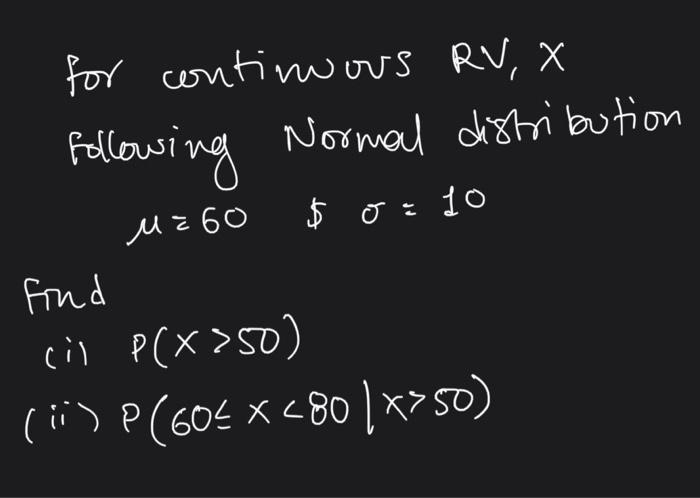 for continuous RV, X
Following Normal distribution
μ = 60 $ σ = 10
Find
(i) P(X > 50)
(ii) P(60 ≤ X < 80 | X > 50)